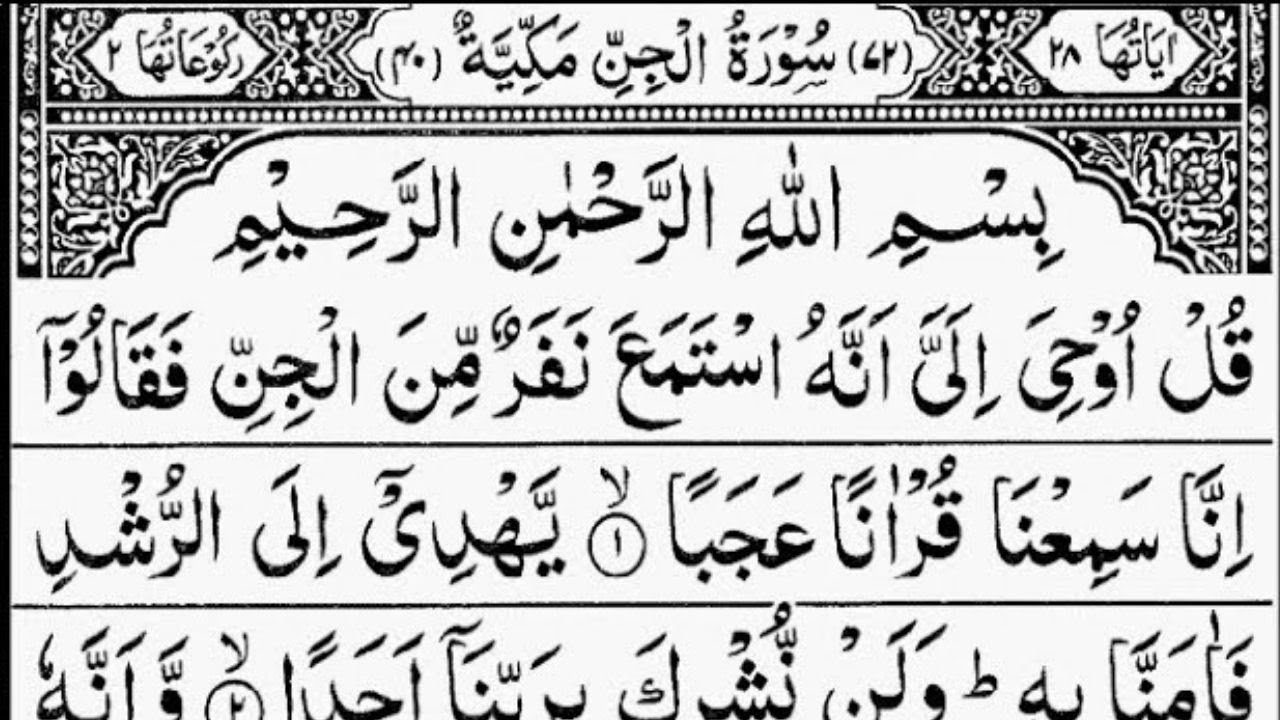 اٰيَاتُهَا ٢٨ (٧٢) سُوْرَةُ الْجِنِّ مَكِّيَّةٌ (٤٠) رُكُوْعَاتُهَا ٢
بِسْمِ اللّٰهِ الرَّحْمٰنِ الرَّحِيْمِ
قُلْ اُوْحِیَ اِلَیَّ اَنَّهُ اسْتَمَعَ نَفَرٌ مِّنَ الْجِنِّ فَقَالُوْۤا
اِنَّا سَمِعْنَا قُرْاٰنًا عَجَبًا ۙ﴿١﴾ یَّهْدِیْۤ اِلَی الرُّشْدِ
فَاٰمَنَّا بِهٖ ؕ وَلَنْ نُّشْرِكَ بِرَبِّنَاۤ اَحَدًا ۙ﴿٢﴾ وَّاَنَّهٗ